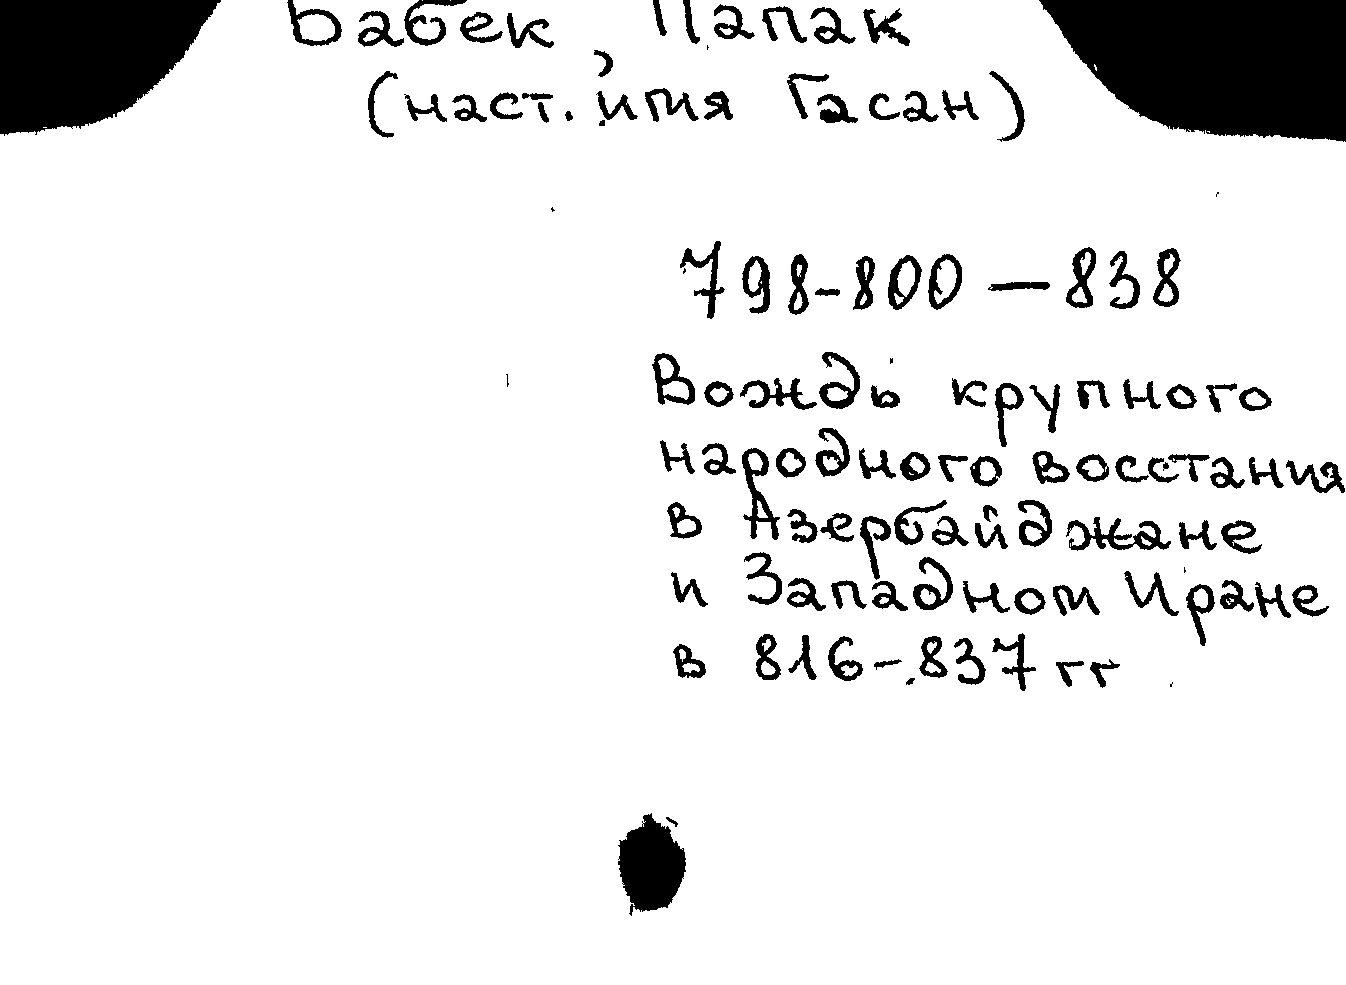 Бабек, Папак
(наст. имя Гасан)
798-800 — 838
Вождь крупного
народного восстания
в Азербайджане
и Западном Иране
в 816-837 гг